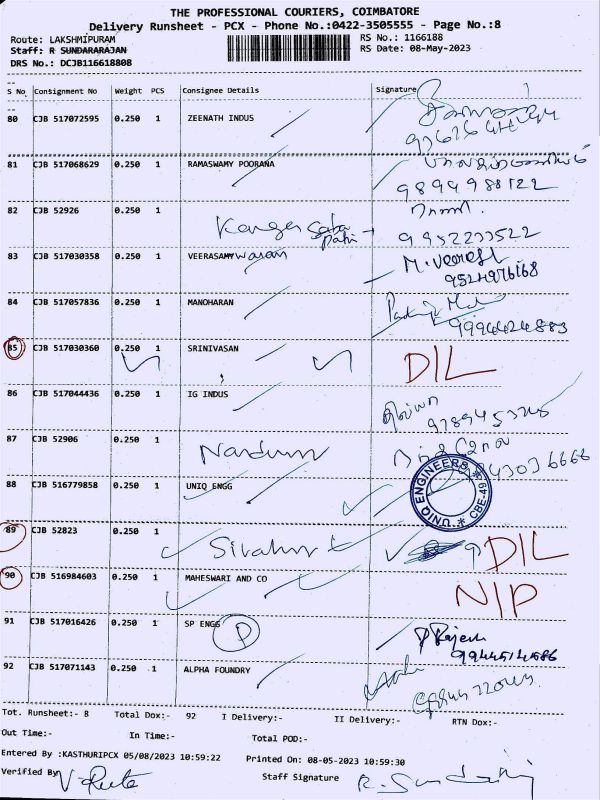 THE PROFESSIONAL COURIERS, COIMBATORE
Delivery Runsheet - PCX - Phone No.:0422-3505555 - Page No.:8
Route: LAKSHMIPURAM RS No.: 1166188
Staff: R SUNDARARAJAN RS Date: 08-May-2023
DRS No.: DCJB116618808
S No Consignment No Weight PCS Consignee Details Signature
80 CJB 517072595 0.250 1 ZEENATH INDUS
81 CJB 517068629 0.250 1 RAMASWAMY POORANA
9894988122
82 CJB 52926 0.250 1
9952233522
83 CJB 517030358 0.250 1 VEERASAMY waran M. Veeresh
9524976168
84 CJB 517057836 0.250 1 MANOHARAN
9994424883
85 CJB 517030360 0.250 1 SRINIVASAN DIL
86 CJB 517044436 0.250 1 IG INDUS
87 CJB 52906 0.250 1
88 CJB 516779858 0.250 1 UNIQ ENGG
UNIQ ENGINEERS * CBE-49 *
89 CJB 52823 0.250 1
DIL
90 CJB 516984603 0.250 1 MAHESWARI AND CO
N/P
91 CJB 517016426 0.250 1 SP ENGG P P Rajesh
9944514686
92 CJB 517071143 0.250 1 ALPHA FOUNDRY
Tot. Runsheet:- 8 Total Dox:- 92 I Delivery:- II Delivery:- RTN Dox:-
Out Time:- In Time:- Total POD:-
Entered By :KASTHURIPCX 05/08/2023 10:59:22 Printed On: 08-05-2023 10:59:30
Verified By Staff Signature